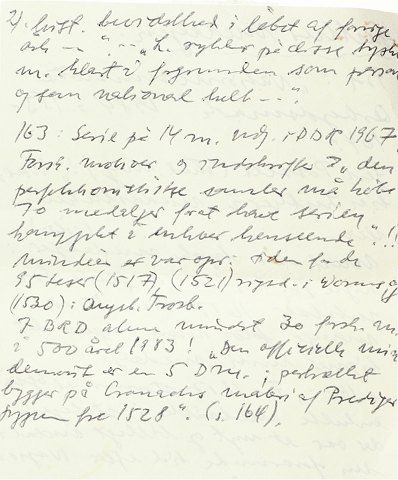 2). hist. bevidsthed i løbet af forrige
årh - - " - - "L. rykker på disse
m. klart i forgrunden som person
og som national helt - - ".
163: Serie på 14 m. udg. i DDR 1967,
Forsk. motiver og indskrifter "den
perfektionistiske samler må købe
70 medaljer for at have serien
komplet i enhver henseende". !!
95 teser (1517), (1521) rigsd. i Worms og
(1530) i Augsb. Trosb.
I BRD alene mindst 30 forsk. m.
i 500 året 1983! "Den officielle
er en 5 DM. ; portrættet
bygger på Cranachs maleri af Prediger
typen fra 1528". (s. 164).